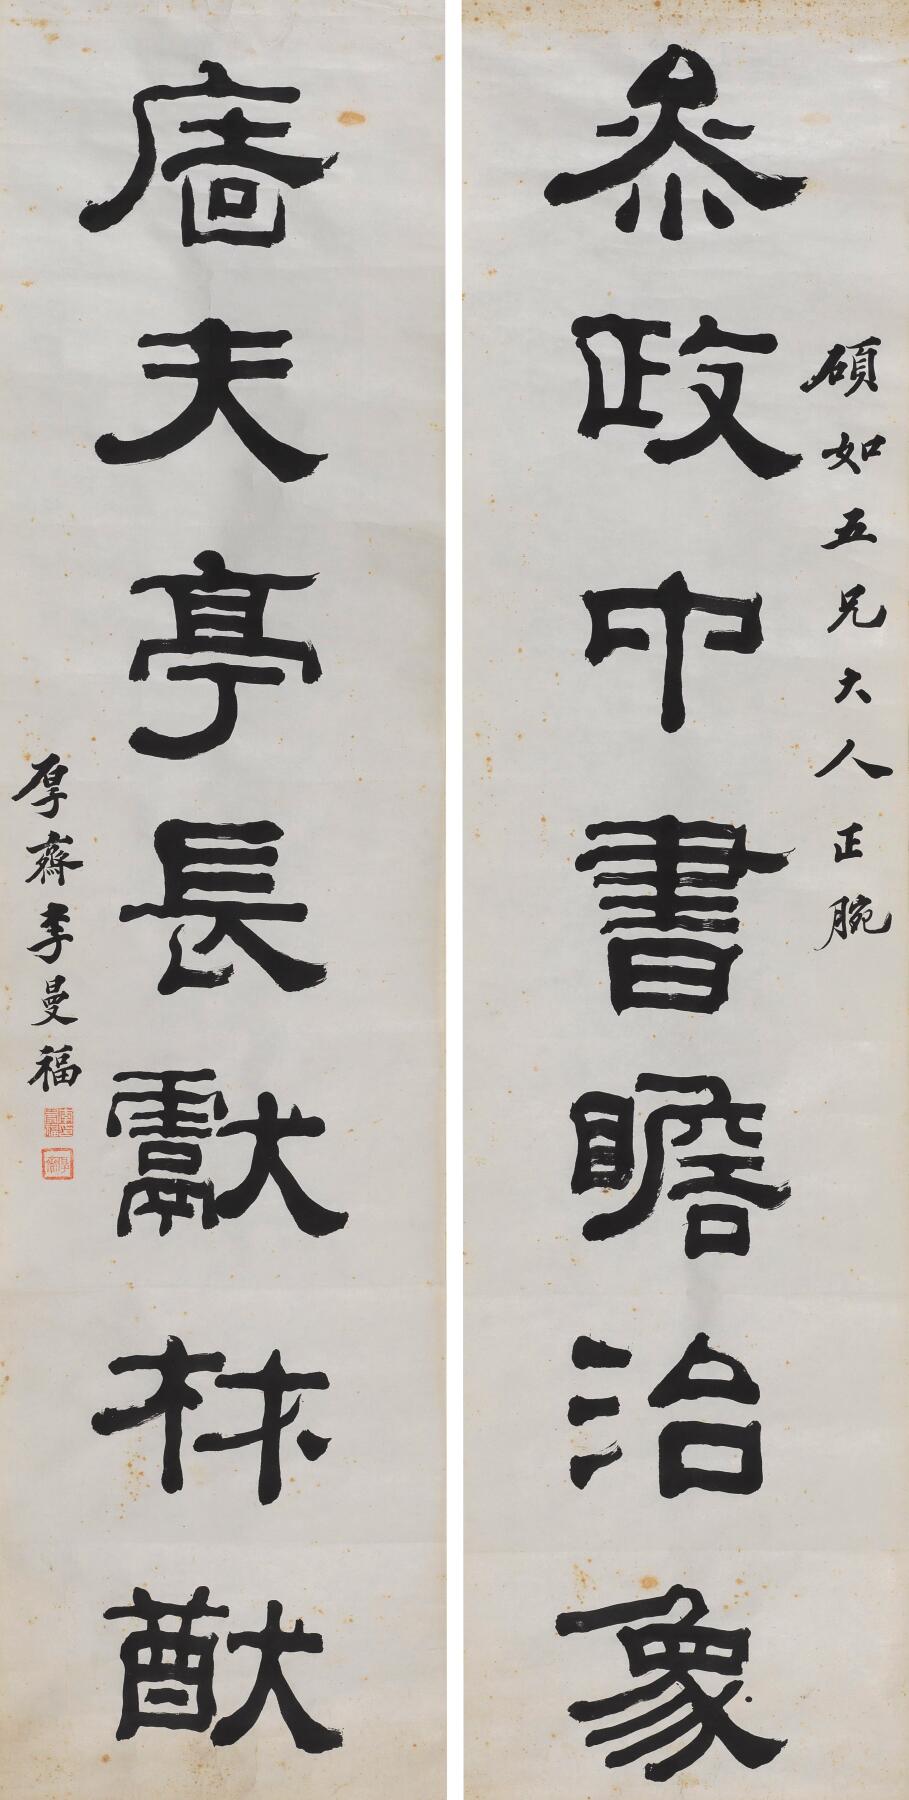 碩如五兄大人正腕
參政中書瞻治象
廧夫亭長獻林猷
厚齋李曼福